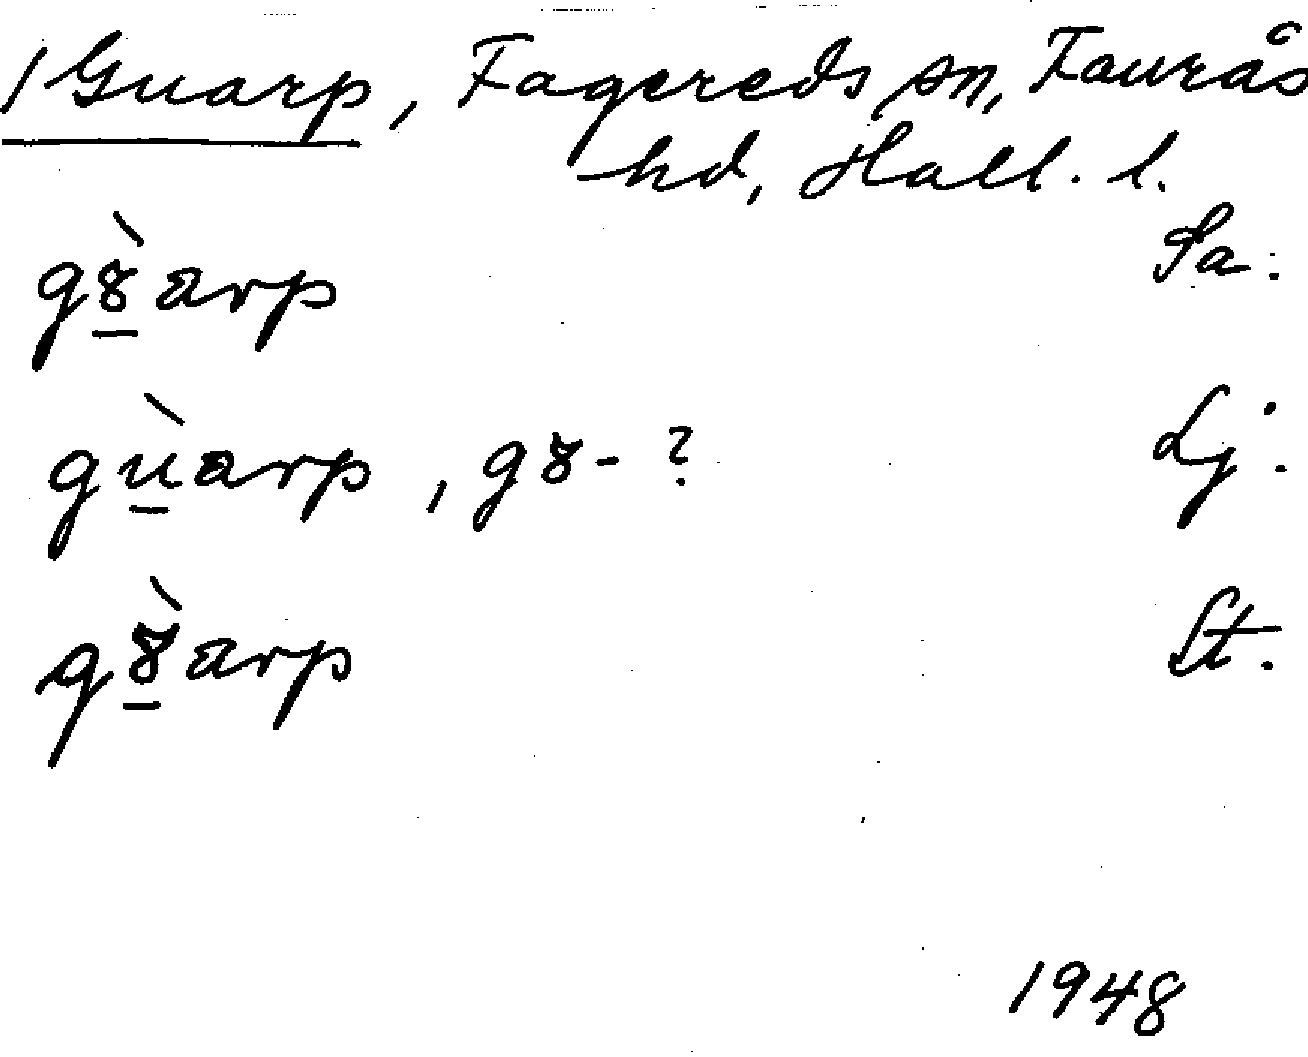 / Guarp, Fagereds sn, Faurås
hd, Hall. l.
gꝸ̱̀arp Sa.
gù̱arp, gꝸ- ? Lj.
gꝸ̱̀arp St.
1948